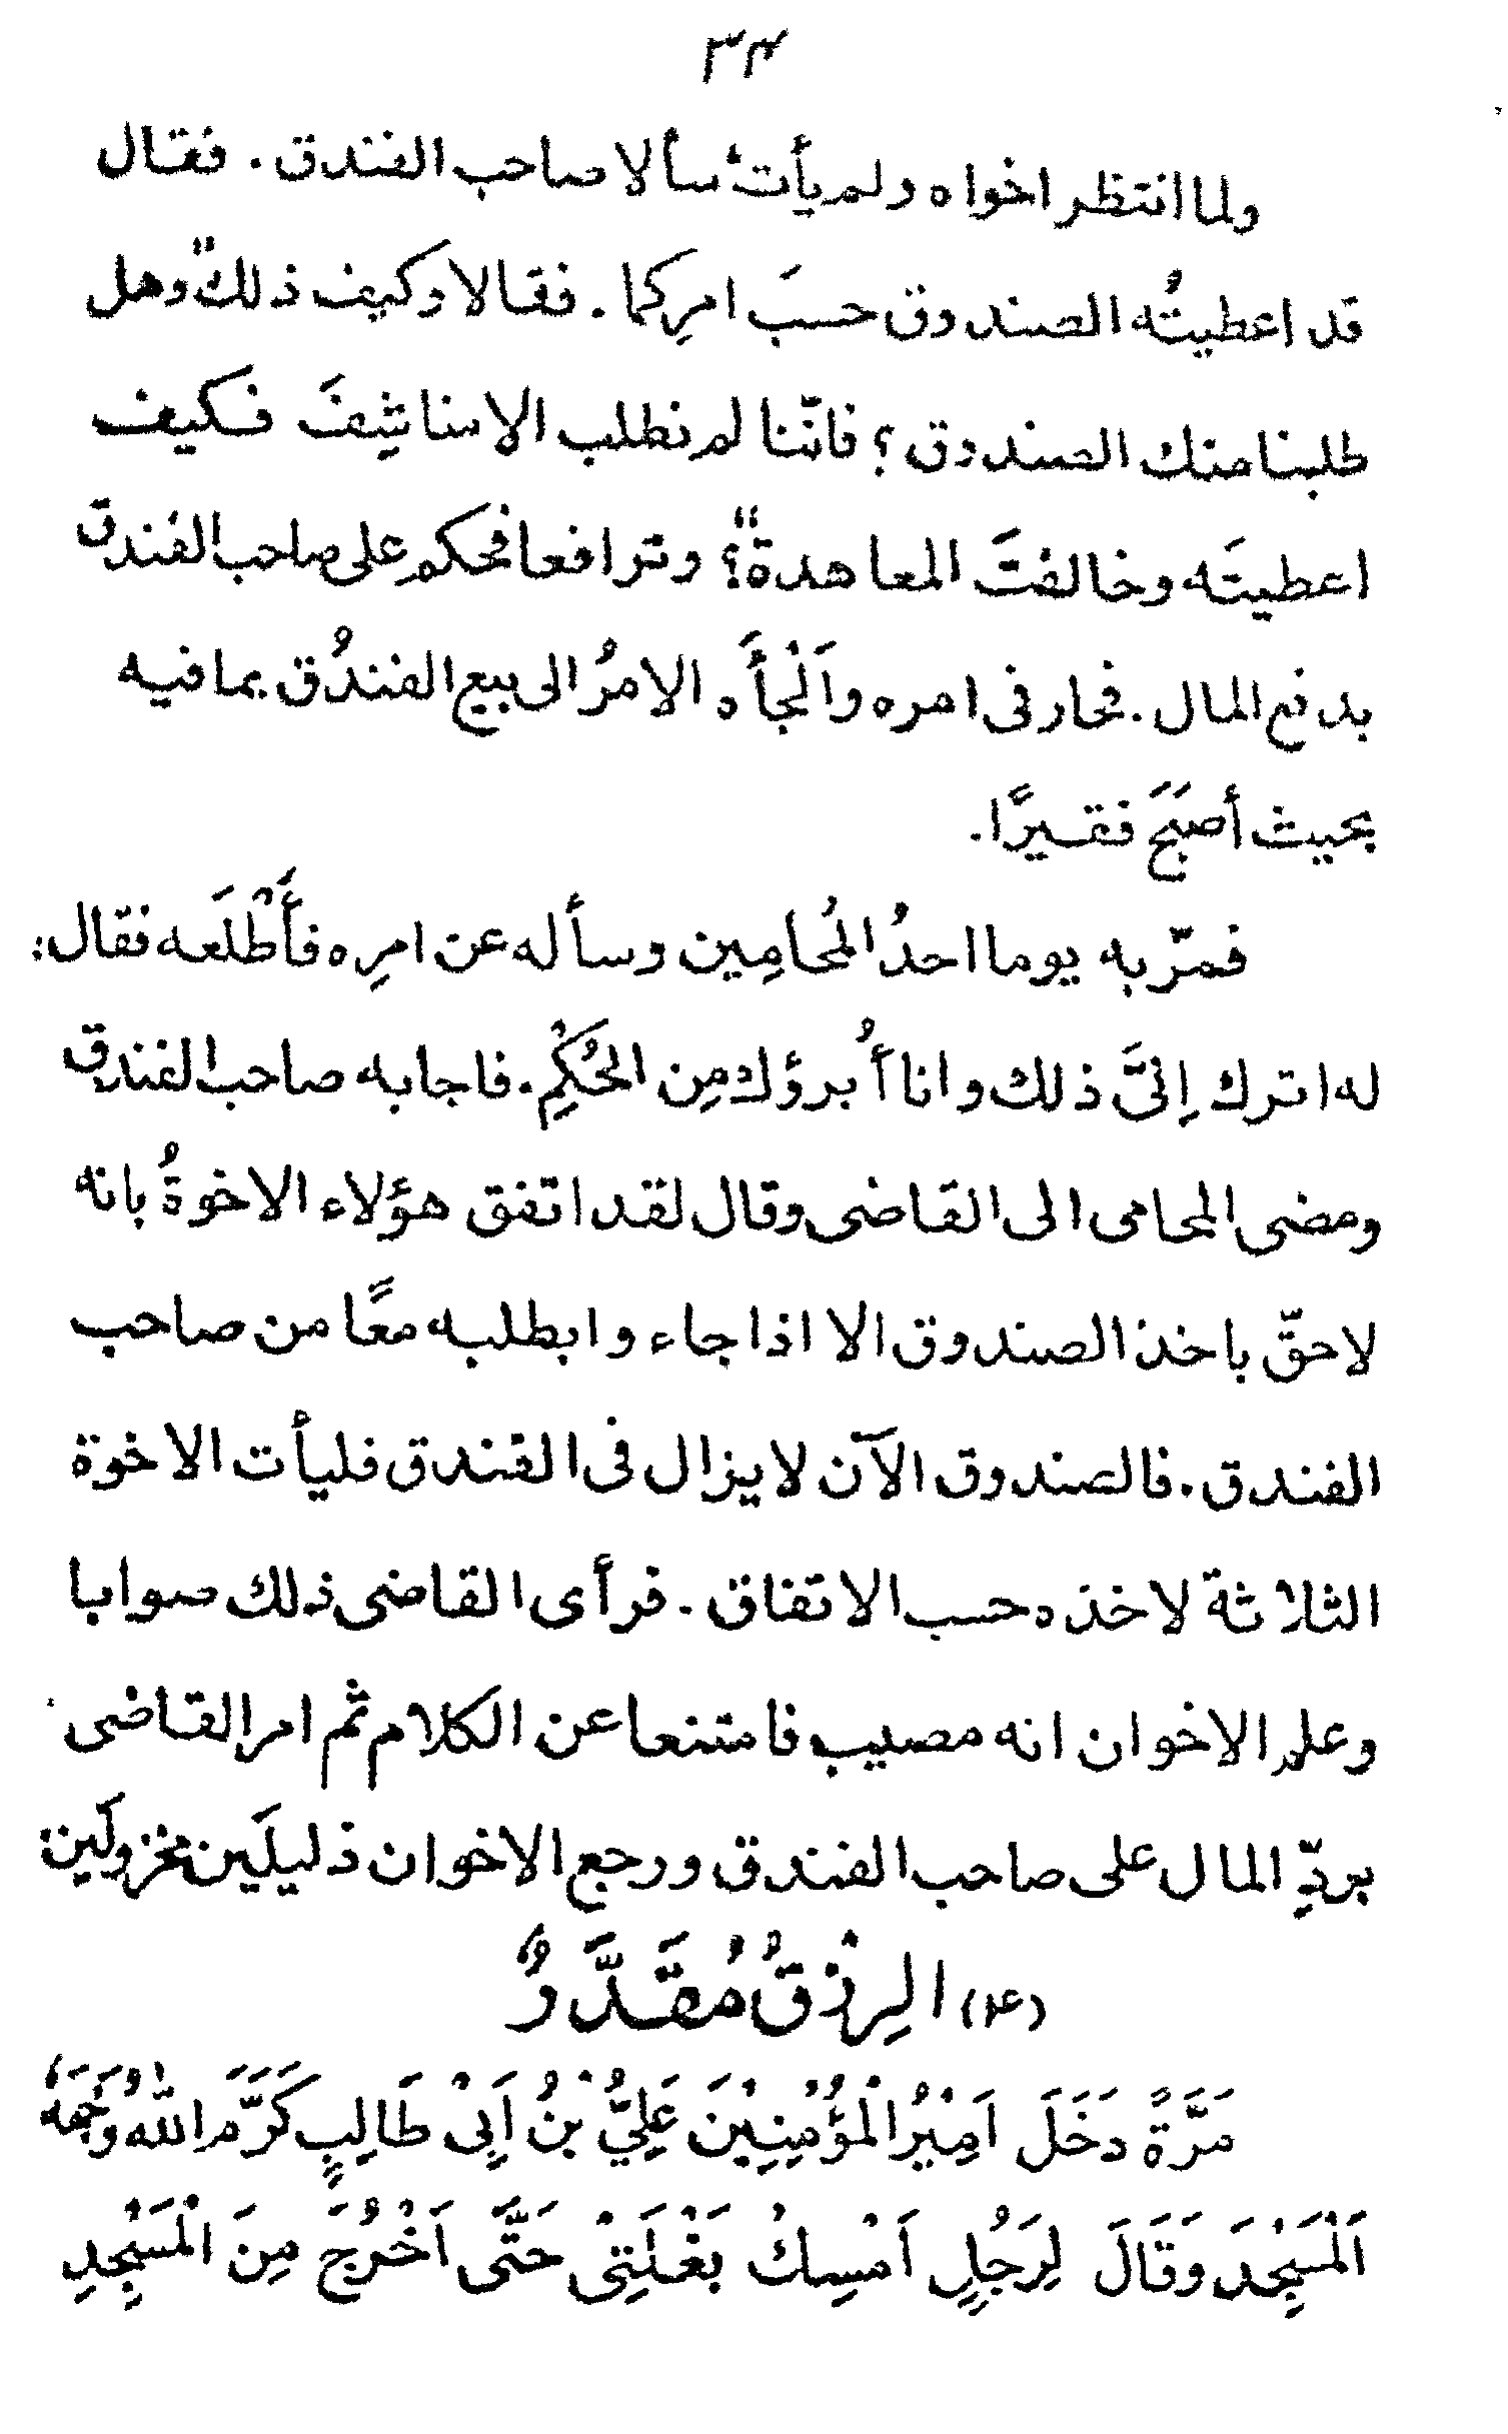 ٣٣
ولما انتظر اخواه ولم يأت سألا صاحب الفندق. فقال
قد اعطيتُه الصندوق حسبَ امرِكما. فقالا وكيف ذلك" وهل
طلبنا منك الصندوق؟ فانّنا لم نطلب الا سناثِفَ فكيف
اعطيتَه وخالفتَ المعاهدة"؟ وترافعا فحكم على صاحب الفندق
بدفع المال. فحار فى امره واَلْجأَه الامرُ الى بيع الفندُق بما فيه
بحيث أصبَحَ فقيرًا.
فمرّ به يوما احدُ المُحامِين وسأله عن امرِه فأَطْلَعه فقال:
له اترك اِلىَّ ذلك وانا أُبرؤك مِن الحُكْمِ. فاجابه صاحب الفندق
ومضى المحامى الى القاضى وقال لقد اتفق هؤلاء الاخوةُ بانه
لا حقّ باخذ الصندوق الا اذا جاء وا بطلبه معًا من صاحب
الفندق. فالصندوق الآن لا يزال فى الفندق فليأت الاخوة
الثلاثة لاخذه حسب الاتفاق. فرأى القاضى ذلك صوابا
وعلم الاخوان انه مصيب فامتنعا عن الكلام ثم امر القاضى
بردِّ المال على صاحب الفندق ورجع الاخوان ذليلَين مخزولَين
(٤) الرِزْقُ مُقَدَّرٌ
مَرَّةً دَخَلَ اَمِيْرُ الْمُؤْمِنِيْنَ عَلِيُّ بْنُ اَبِىْ طَالِبٍ كَرَّمَ اللهُ وَجْهَهُ
اَلْمَسْجِدَ وَقَالَ لِرَجُلٍ اَمْسِكْ بَغْلَتِىْ حَتَّى اَخْرُجَ مِنَ الْمَسْجِدِ